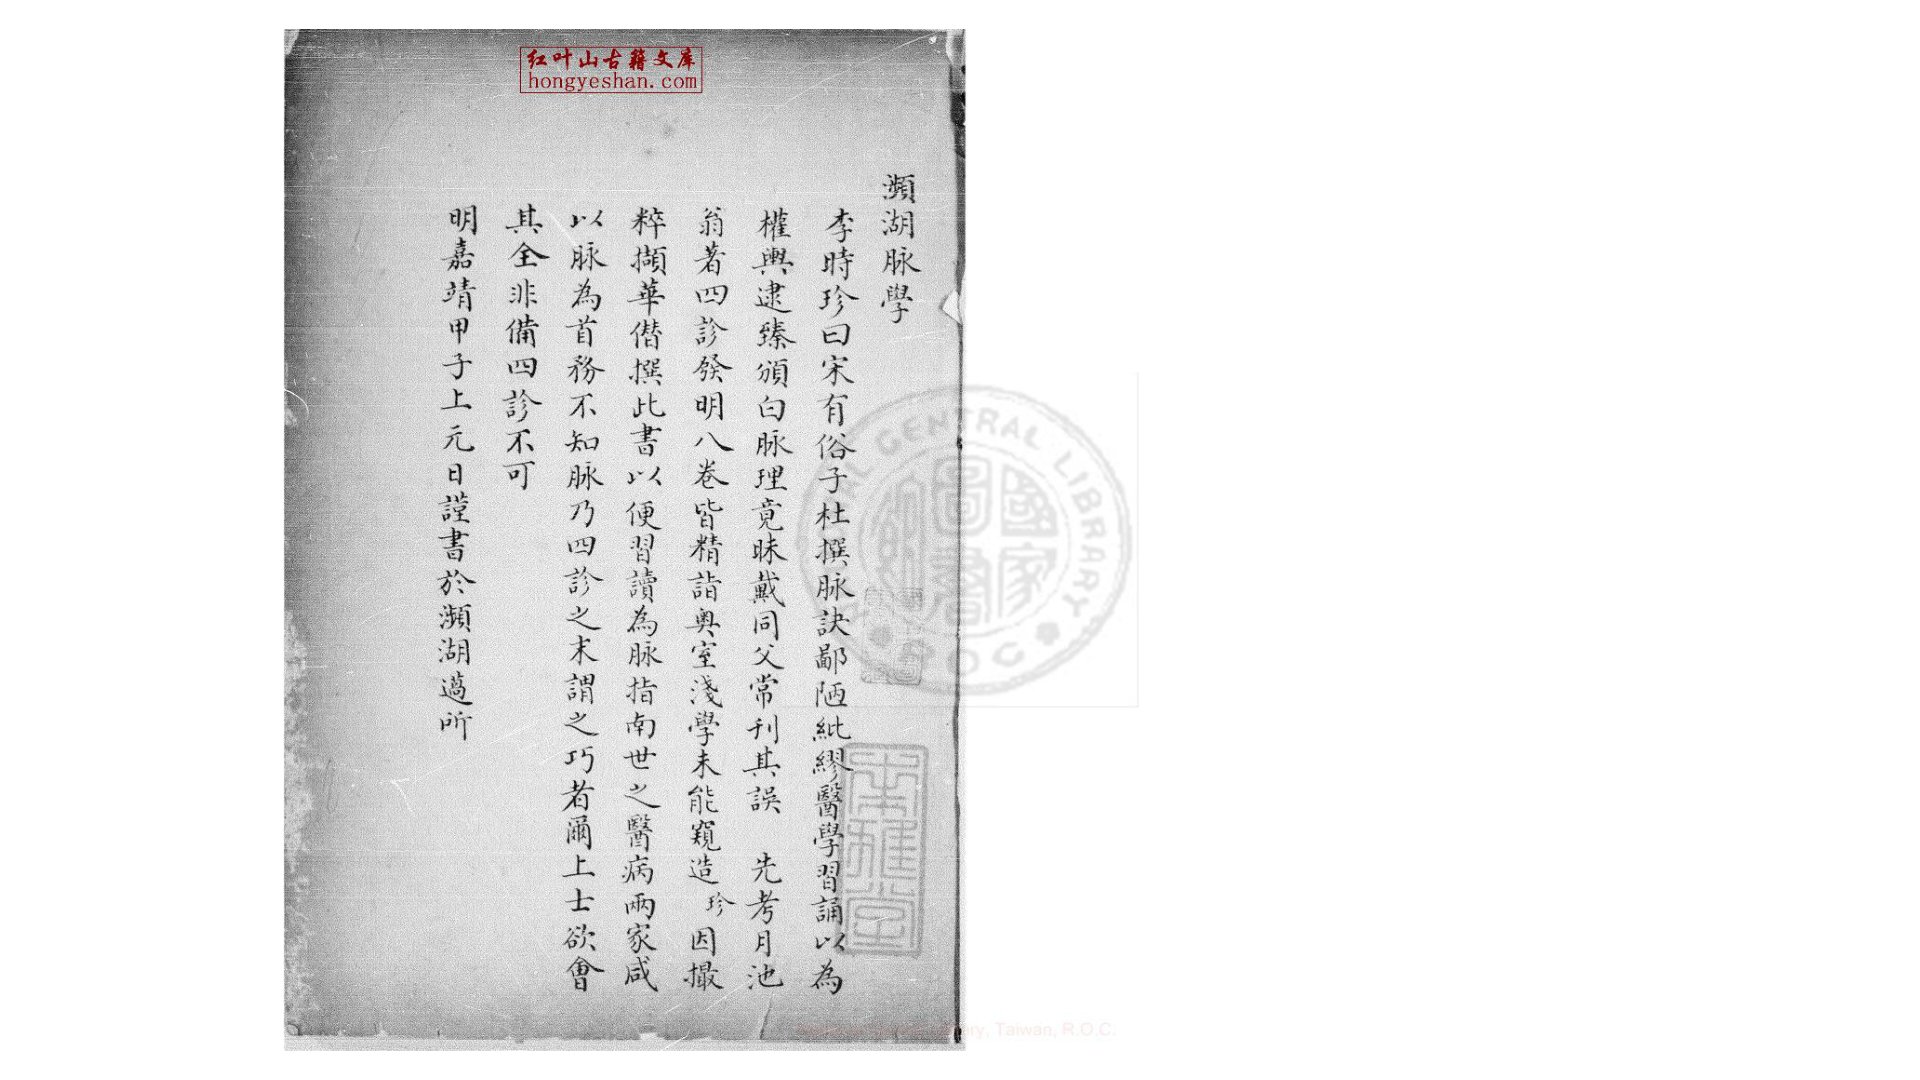 红叶山古籍文库
hongyeshan.com
瀕湖脉學
李時珍曰宋有俗子杜撰脉訣鄙陋紕繆醫學習誦以為
權輿逮臻頒白脉理竟昧戴同父常刊其誤 先考月池
翁著四診發明八卷皆精詣奥室淺學未能窺造珍因撮
粹擷華僭撰此書以便習讀為脉指南世之醫病兩家咸
以脉為首務不知脉乃四診之末謂之巧者爾上士欲會
其全非備四診不可
明嘉靖甲子上元日謹書於瀕湖薖所
CENTRAL LIBRARY
R.O.C
國家圖書館
Taiwan, R.O.C.